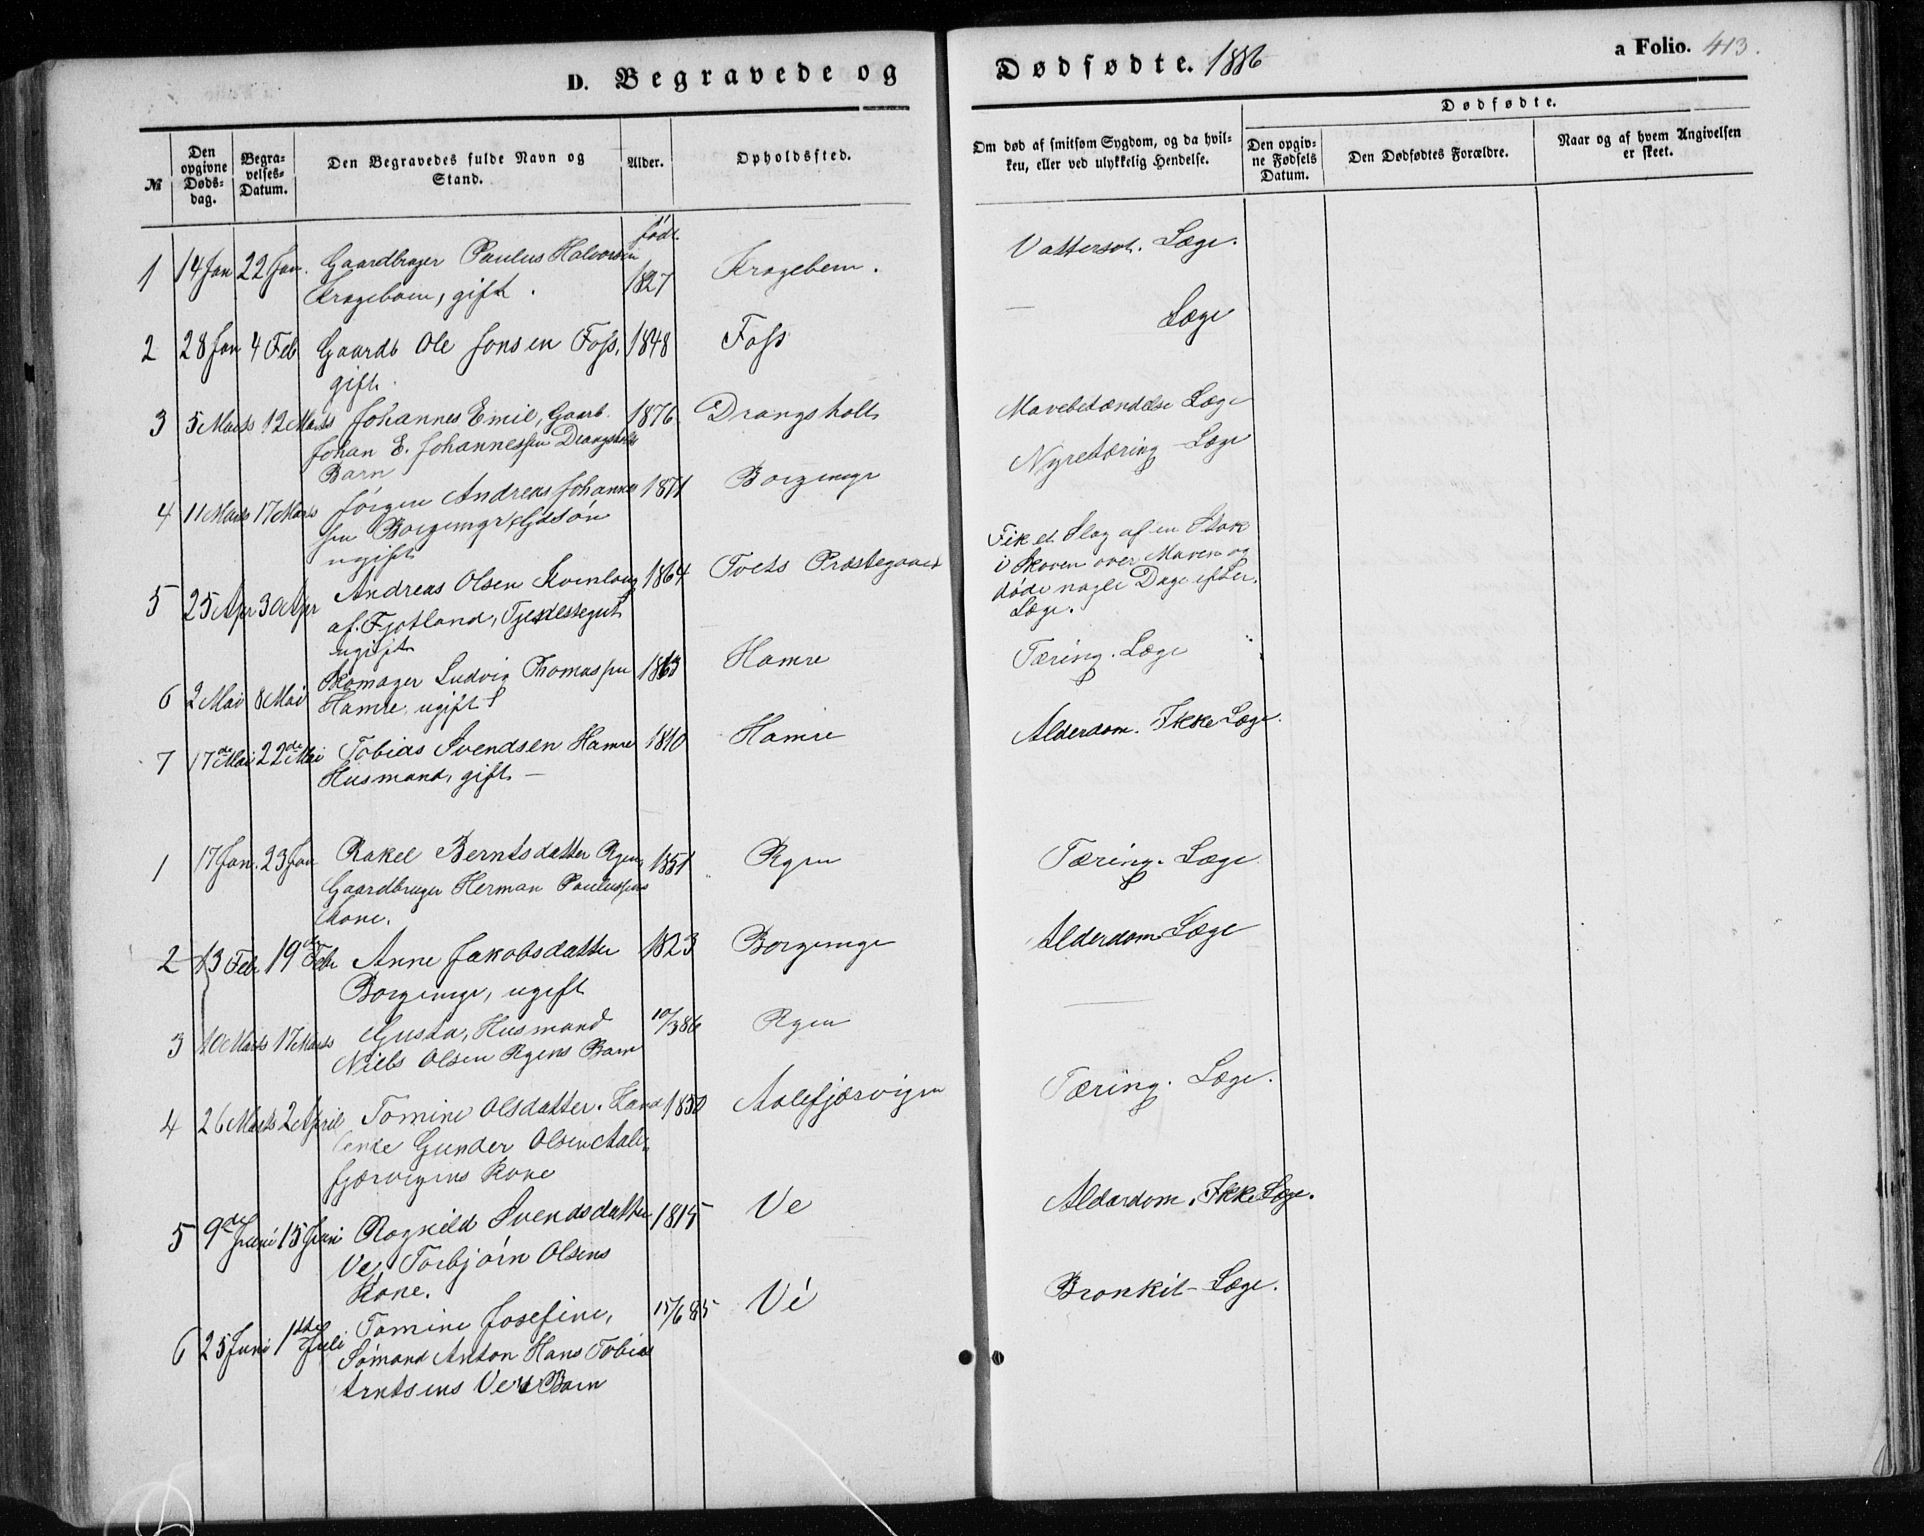 D. Begravede og Dødfødte. 1886 a Folio. 413.
№
Den opgivne Døds-dag.
Begra-velses-Datum.
Den Begravedes fulde Navn og Stand.
Alder.
Opholdssted.
Om død af smitsom Sygdom, og da hvil-ken, eller ved ulykkelig Hendelse.
Dødfødte.
Den opgiv-ne Fødsels Datum.
Den Dødfødtes Forældre.
Naar og af hvem Angivelsen er skeet.
født
1 14 Jan 22 Jan. Gaardbruger Paulus Halvorsen 1827 Kragebøen. Vattersot. Læge.
Krageboen, gift.
2 28 Jan 4 Feb Gaardb Ole Jonsen Foss, 1848 Foss — Læge
gift.
3 5 Marts 12 Marts Johannes Emil, Gaarb. 1876 Drangsholt Mavebetændelse Læge
Johan E. Johannessen Drangsholts
Barn
4 11 Marts 17 Marts Jørgen Andreas Johannes 1871 Borgemyr Nyretæring Læge
sen Borgemyr, Gdsøn
ugift
5 25 Apr 30 Apr Andreas Olsen 1864 Tvets Præstegaard Fik et Slag af en Stok
af Fjotland, Tjenestegut i Skoven over Maven og
ugift døde nogle Dage efter.
Læge.
6 2 Mai 8 Mai Skomager Ludvig Thomassen 1863 Hamre Tæring. Læge
Hamre, ugift
7 17de Mai 22de Mai Tobias Svendsen Hamre 1810 Hamre Alderdom. Ikke Læge.
Husmand, gift —
1 17 Jan. 23 Jan Rakel Berntsdatter Ryen, 1851 Ryen Tæring. Læge
Gaardbruger Herman Paulussens
Kone.
2 13 Feb 19de Feb Anne Jakobsdatter 1823 Borgemyr Alderdom Læge
Borgemyr, ugift
3 10 Marts 17 Marts Gusta, Husmand 10/3 86 Ryen —
Niels Olsen Ryens Barn
4 26 Marts 2 April Tomine Olsdatter. 1850 Aalefjærvigen Tæring. Læge.
Gunder Olsen Aale
fjærvigens Kone
5 9de Juni 15 Juni Ragnild Svendsdatter 1815 Ve Alderdom. Ikke Læge.
Ve, Torbjørn Olsens
Kone.
6 25 Juni 1ste Juli Tomine Josefine, 15/6 85 Vé Bronkit — Læge.
Sømand Anton Hans Tobias
Arntsens Ves Barn